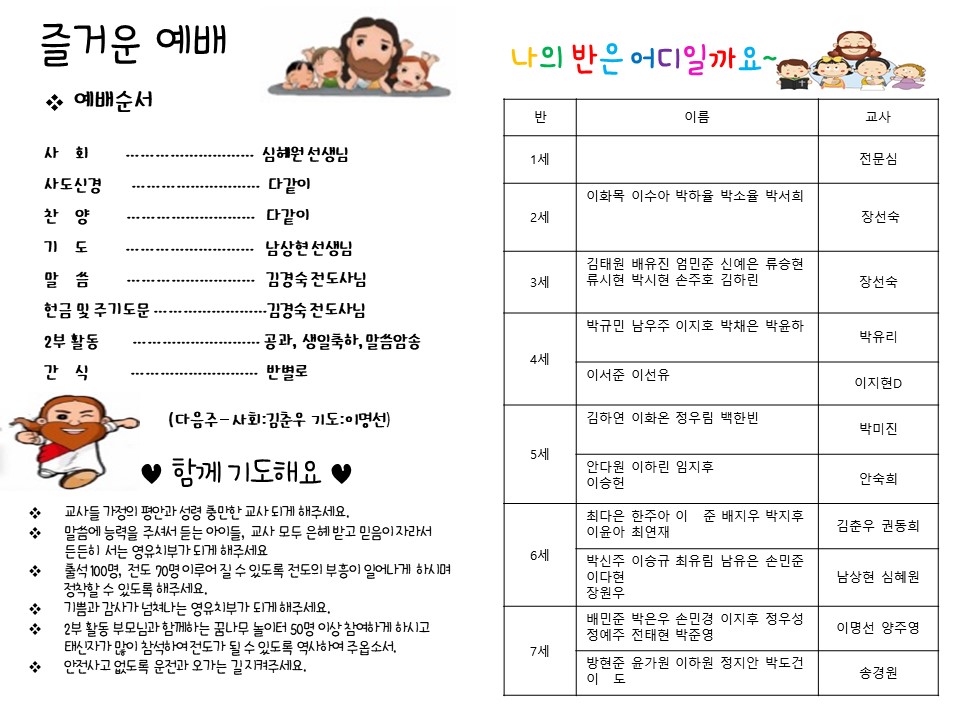 즐거운 예배
❖ 예배순서
사 회 ---------------------------- 심혜원 선생님
사도신경 ---------------------------- 다같이
찬 양 ---------------------------- 다같이
기 도 ---------------------------- 남상현 선생님
말 씀 ---------------------------- 김경숙 전도사님
헌금 및 주기도문 -------------------------김경숙 전도사님
2부 활동 ---------------------------- 공과, 생일축하, 말씀암송
간 식 ---------------------------- 반별로
(다음주 – 사회:김춘우 기도:이명선)
♥ 함께 기도해요 ♥
❖ 교사들 가정의 평안과 성령 충만한 교사 되게 해주세요.
❖ 말씀에 능력을 주셔서 듣는 아이들, 교사 모두 은혜 받고 믿음이 자라서
든든히 서는 영유치부가 되게 해주세요
❖ 출석 100명, 전도 70명 이루어 질 수 있도록 전도의 부흥이 일어나게 하시며
정착할 수 있도록 해주세요.
❖ 기쁨과 감사가 넘쳐나는 영유치부가 되게 해주세요.
❖ 2부 활동 부모님과 함께하는 꿈나무 놀이터 50명 이상 참여하게 하시고
태신자가 많이 참석하여 전도가 될 수 있도록 역사하여 주옵소서.
❖ 안전사고 없도록 운전과 오가는 길 지켜주세요.
나의 반은 어디일까요~
반 이름 교사
1세 전문심
2세 이화목 이수아 박하율 박소율 박서희 장선숙
3세 김태원 배유진 엄민준 신예은 류승현
류시현 박시현 손주호 김하린 장선숙
4세 박규민 남우주 이지호 박채은 박윤하 박유리
이서준 이선유 이지현D
5세 김하연 이화온 정우림 백한빈 박미진
안다원 이하린 임지후
이승헌 안숙희
6세 최다은 한주아 이 준 배지우 박지후
이윤아 최연재 김춘우 권동희
박신주 이승규 최유림 남유은 손민준
이다현
장원우 남상현 심혜원
7세 배민준 박은우 손민경 이지후 정우성
정예주 전태현 박준영 이명선 양주영
방현준 윤가원 이하원 정지안 박도건
이 도 송경원